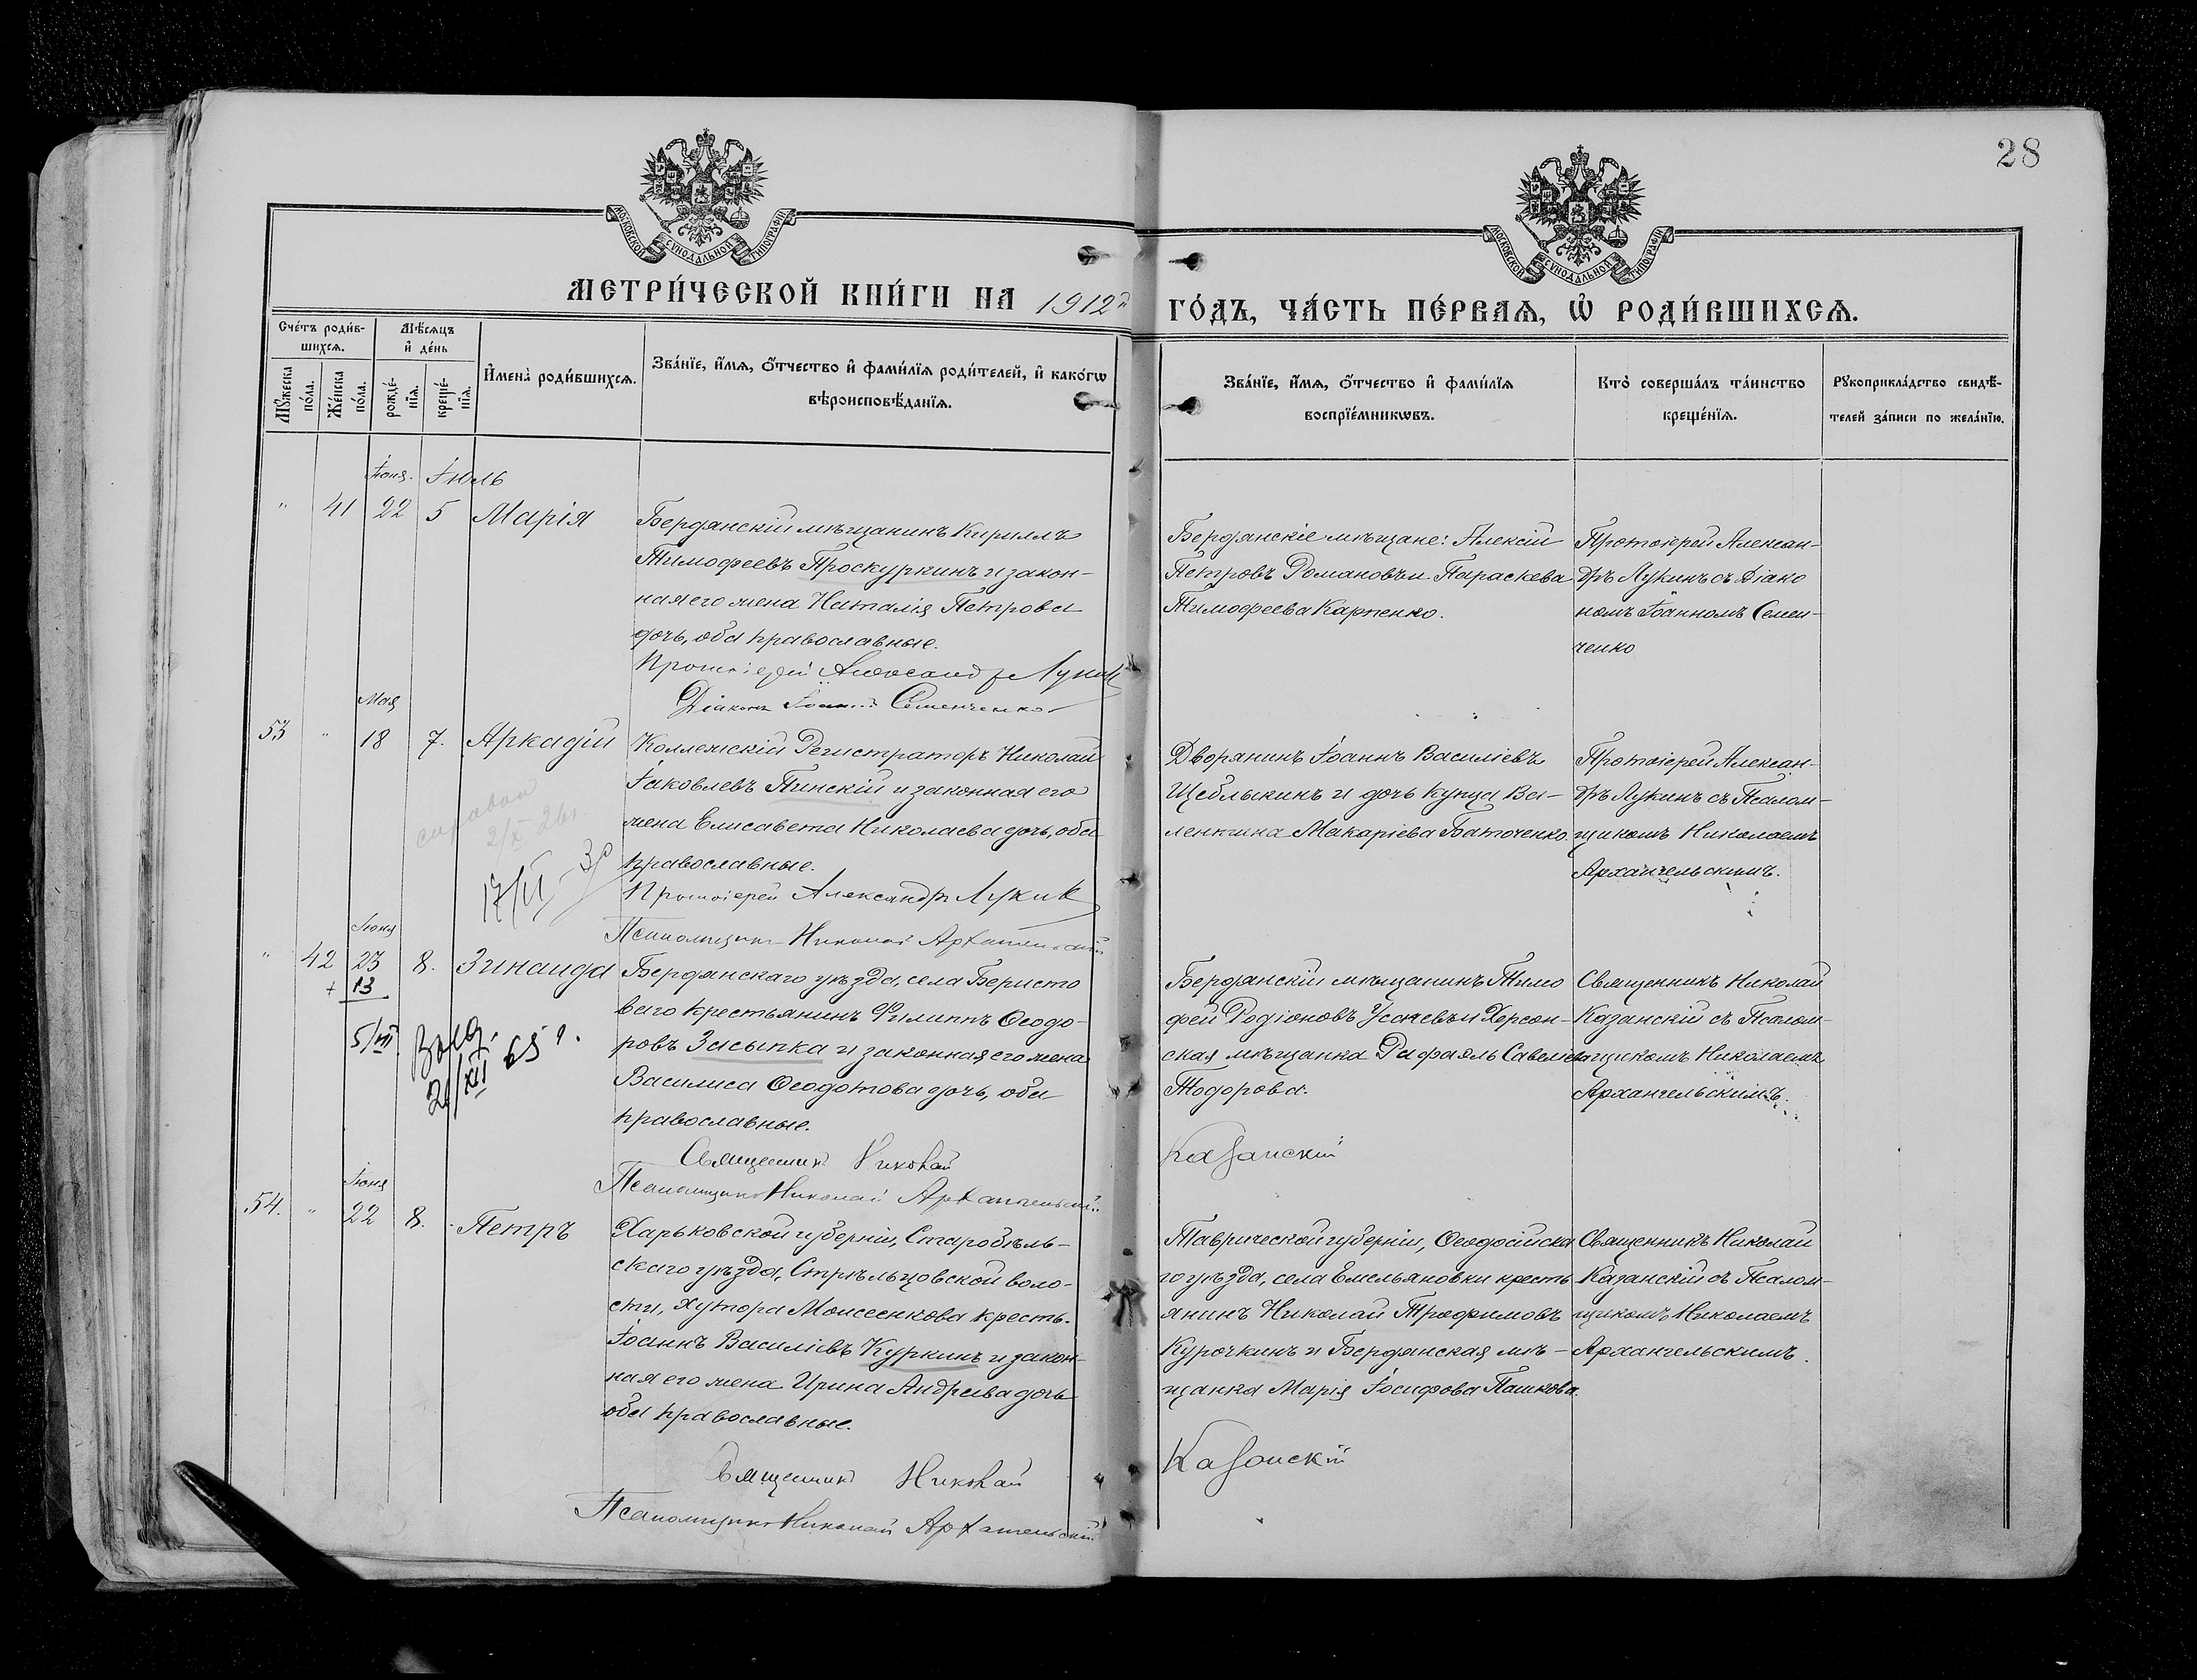 28
МОСКОВСКОЙ СУНОДАЛЬНОЙ ТИПОГРАФІИ
МОСКОВСКОЙ СУНОДАЛЬНОЙ ТИПОГРАФІИ
МЕТРИ́ЧЕСКОЙ КНИ́ГИ НА 1912й ГО́ДЪ, ЧА́СТЬ ПЕ́РВАѦ, Ѡ РОДИ́ВШИХСѦ.
Сче́тъ роди́в-
шихсѧ.
Мѣ́сѧцъ
и҆ де́нь
Мꙋ́жеска
по́ла.
Же́нска
по́ла.
рожде́-
нїѧ.
креще́-
нїѧ.
И҆мена̀ роди́вшихсѧ.
Зва́нїе, и҆́мѧ, ѻ҆́тчество и҆ фами́лїѧ роди́телей, и҆ како́гѡ
вѣроисповѣ́данїѧ.
Зва́нїе, и҆́мѧ, ѻ҆́тчество и҆ фами́лїѧ
воспрїе́мникѡвъ.
Кто̀ соверша́лъ та́инство
креще́нїѧ.
Рꙋкоприкла́дство свидѣ́-
телей за́писи по жела́нїю.
Іюня. Іюль
" 41 22 5 Марія
Бердянскій мѣщанинъ Кириллъ
Тимофеевъ Проскуркинъ и закон-
ная его жена Наталія Петрова
дочь, оба православные.
Протоіерей Александръ Лукинъ
Діаконъ Іоаннъ Семенченко
Бердянскіе мѣщане: Алексій
Петровъ Романовъ и Параскева
Тимофеева Карпенко.
Протоіерей Алексан-
дръ Лукинъ съ Діако
номъ Іоанномъ Семен-
ченко
Мая
53 " 18 7. Аркадій
Коллежскій Регистраторъ Николай
Іаковлевъ Пинскій и законная его
жена Елисавета Николаева дочь, оба
православные.
Протоіерей Александръ Лукинъ
Псаломщикъ Николай Архангельскій
Дворянинъ Іоаннъ Василіевъ
Щеблыкинъ и дочь купца Ва-
лентина Макаріева Баточенко.
Протоіерей Алексан-
дръ Лукинъ съ Псалом-
щикомъ Николаемъ
Архангельскимъ.
2/X 26г.
17/VI
Іюня
" 42 23 8. Зинаида
+ 13
5/VII
21/XII 65 г.
Бердянскаго уѣзда, села Беристо
ваго крестьянинъ Филиппъ Ѳеодо-
ровъ Засыпка и законная его жена
Василиса Ѳеодотова дочь, оба
православные.
Священникъ Николай
Казанскій
Псаломщикъ Николай Архангельскій
Бердянскій мѣщанинъ Тимо
фей Родіоновъ Усачевъ и Херсон-
ская мѣщанка Рафаэль Савеліева
Тодорова.
Священникъ Николай
Казанскій съ Псалом-
щикомъ Николаемъ
Архангельскимъ.
Іюня
54. " 22 8. Петръ
Харьковской губерніи, Старобѣль-
скаго уѣзда, Стрѣльцовской воло-
сти, хутора Моисеенкова кресть.
Іоаннъ Василіевъ Куркинъ и закон-
ная его жена Ирина Андреева дочь
оба православные.
Священникъ Николай
Казанскій
Псаломщикъ Николай Архангельскій
Таврической губерніи, Ѳеодосійска
го уѣзда, села Емельяновки кресть
янинъ Николай Трофимовъ
Курочкинъ и Бердянская мѣ-
щанка Марія Іосифова Пашкова.
Священникъ Николай
Казанскій съ Псалом-
щикомъ Николаемъ
Архангельскимъ.